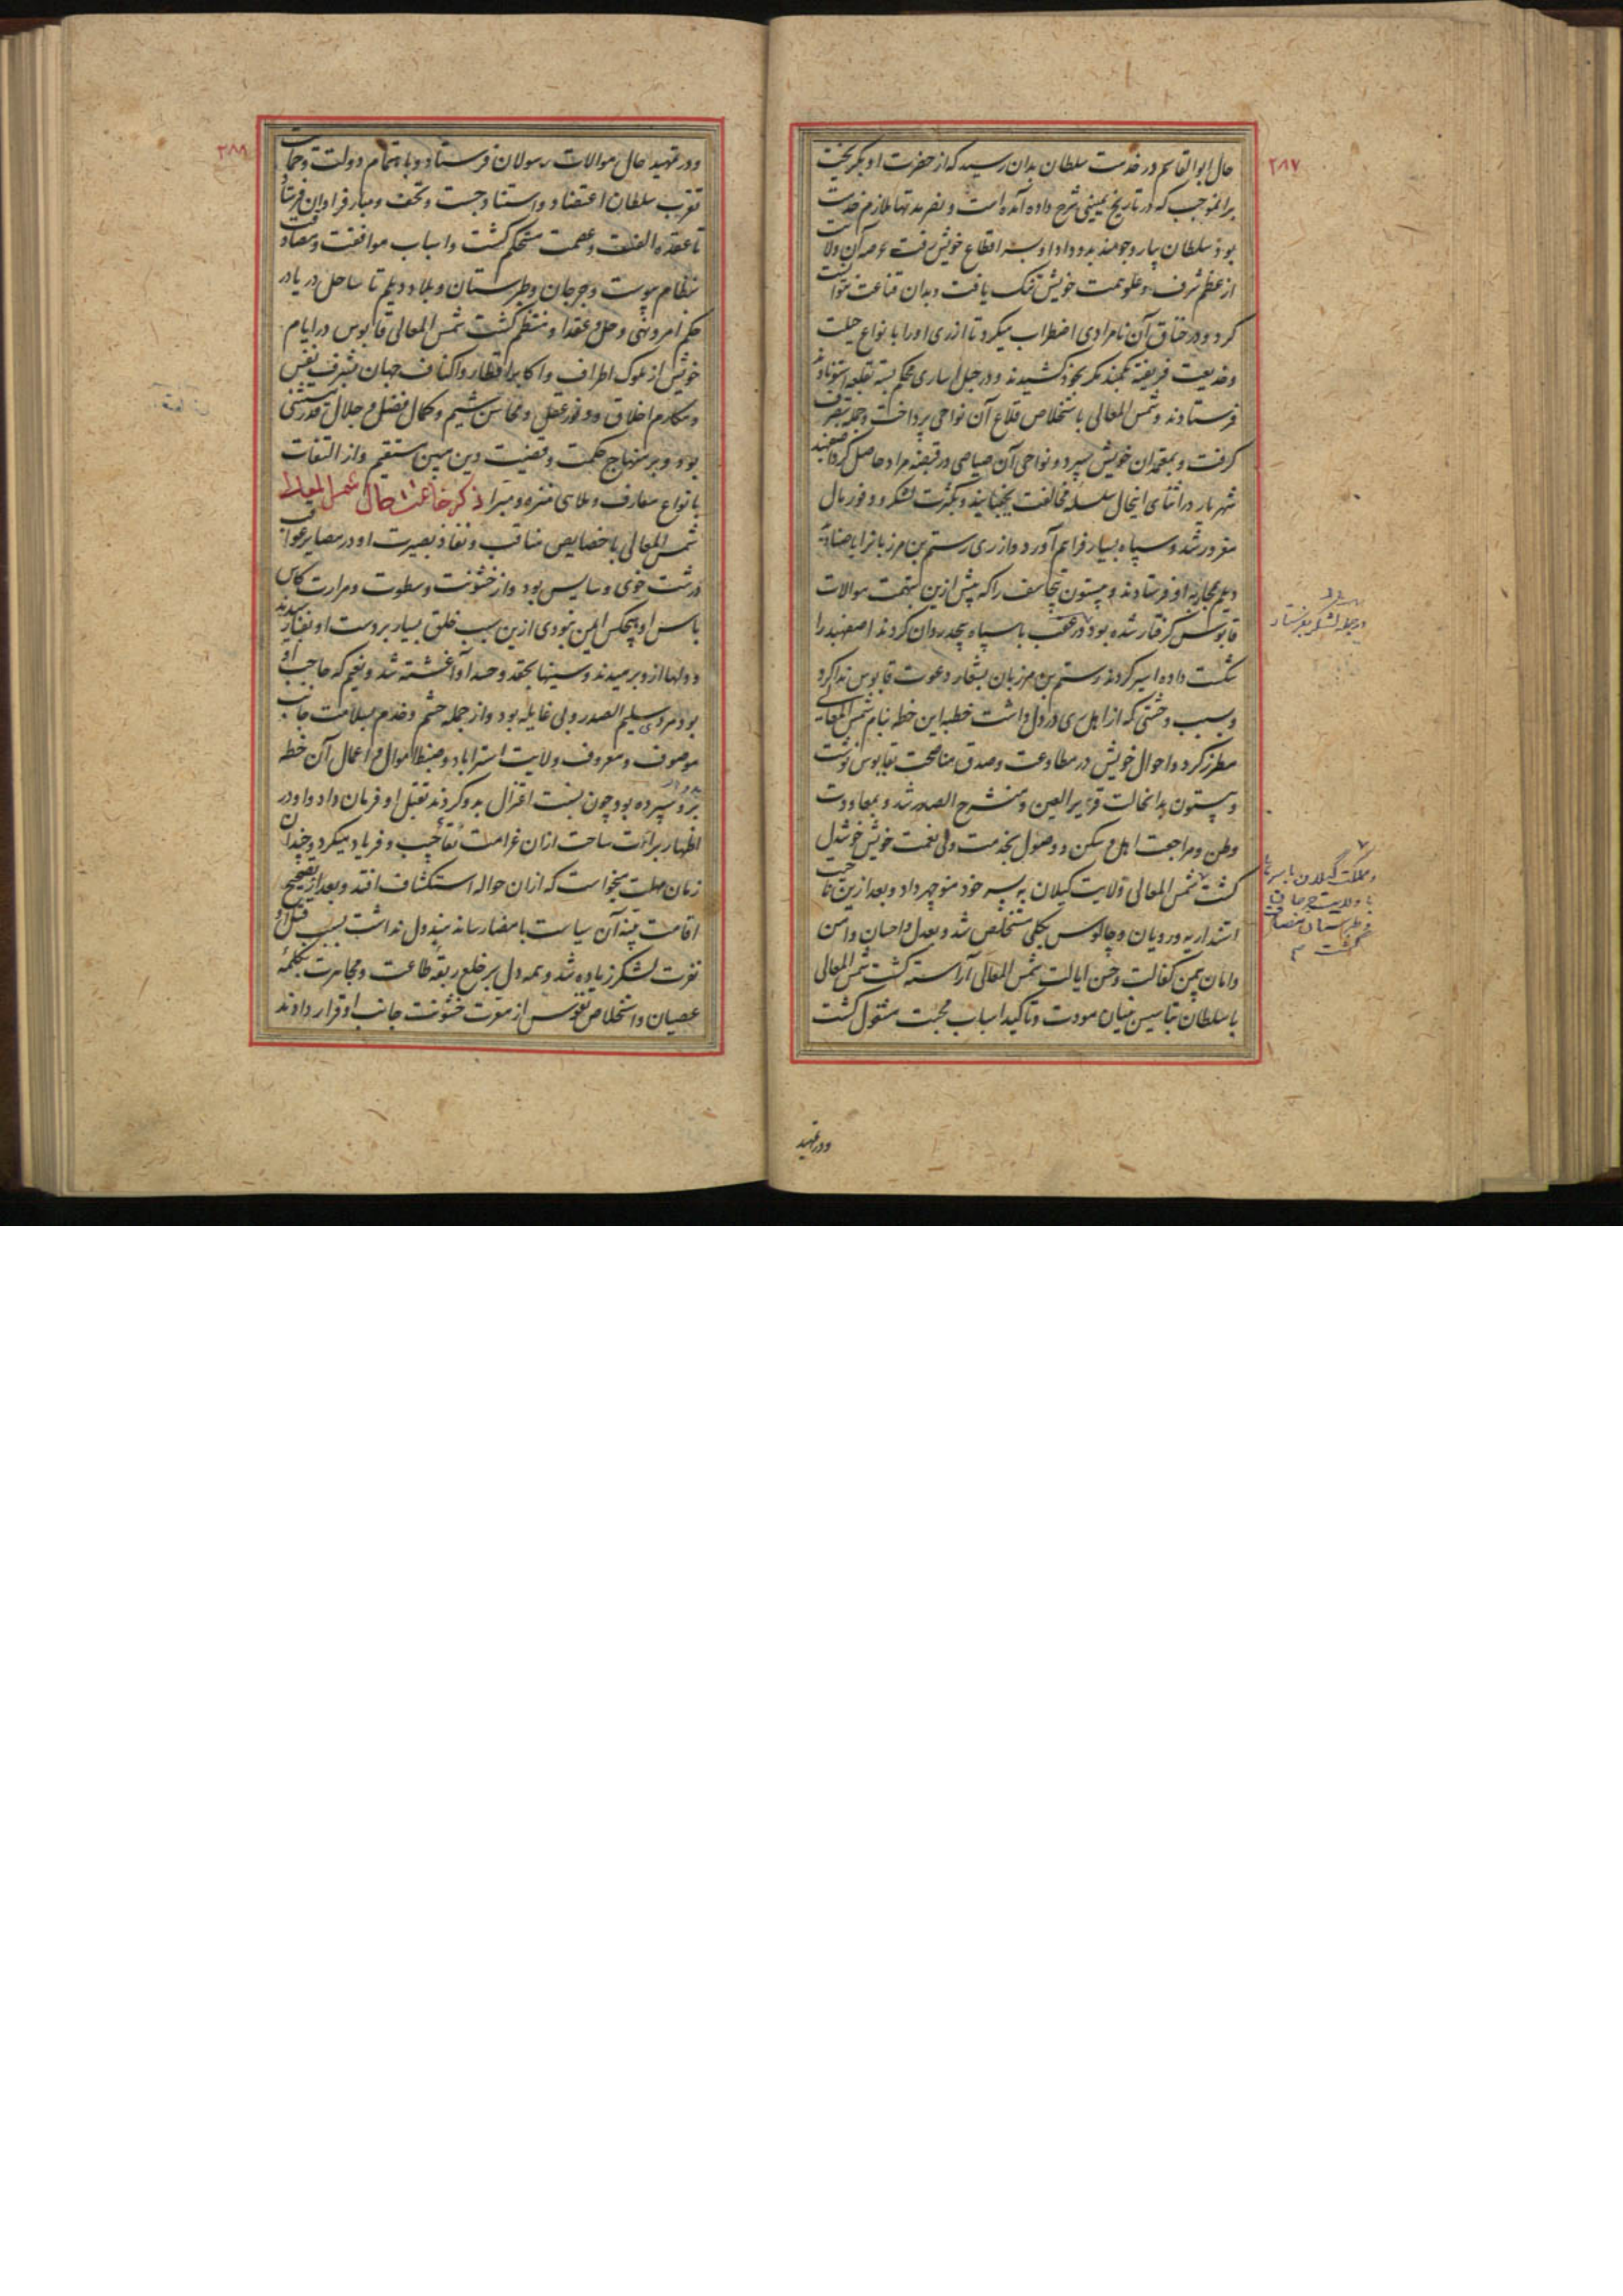 ۲۸۷
حال ابوالقاسم در خدمت سلطان بدان رسید که از حضرت او بگریخت
برانموجب که در تاریخ یمینی شرح داده آمده است و نصر بد تنها ملازم خدمت
بود سلطان بیار و جومند بدو داد او بسر اقطاع خویش رفت و عرصه آن ولایت
از عظم شرف و علو همت خویش تنگ یافت و بدان قناعت نتوانست
کرد و در خناق آن نامرادی اضطراب میکرد تا از ری او را بانواع حیلت
و خدیعت فریفته بکمند مکر بخود کشیدند و در حبل اساری محکم بسته بقلعه استوناوند
فرستادند و شمس المعالی باستخلاص قلاع آن نواحی پرداخت و جمله بتصرف
گرفت و بمعتمدان خویش سپرد و نواحی آن صیاصی در قبضه مراد حاصل کرد اصفهبد
شهریار در اثنای اینحال سلسله مخالفت بجنبانید و بکثرت لشکر و وفور مال
مغرور شد و سپاه بسیار فراهم آورد و از ری رستم بن مرزبانرا با صنادید
دیلم بمحاربه او فرستادند و بیستون بن تجاسف را که پیش ازین بتهمت موالات
قابوس گرفتار شده بود در عقب با سپاه بیحد روان کردند اصفهبد را
شکست داده اسیر کردند رستم بن مرزبان بشعار دعوت قابوس ندا کرد
و سبب وحشتی که از اهل ری در دل داشت خطبه این خطه بنام شمس المعالی
مطرز کرد و احوال خویش در مطاوعت و صدق مناصحت بقابوس نوشت
و بیستون بدانحالت قریر العین و منشرح الصدر شد و بمعاودت
وطن و مراجعت اهل و سکن و وصول بخدمت ولی نعمت خویش خوشدل
گشت شمس المعالی ولایت گیلان به پسر خود منوچهر داد و بعد ازین ناحیت
استنداریه و رویان و چالوس بکلی مستخلص شد و بعدل و احسان و امن
و امان بیمن کفالت و حسن ایالت شمس المعالی آراسته گشت شمس المعالی
با سلطان بتاسیس بنیان مودت و تاکید اسباب محبت مشغول گشت
و در جمله لشکر بفرستاد
و مملکت گیلان باسرها
با ولایت جرجان
و طبرستان مضاف
گشت
و در تمهید
۲۸۸
و در تمهید حال موالات رسولان فرستاد و باهتمام دولت و حمایت
تقرب سلطان اعتضاد و استناد جست و تحف و مبار فراوان فرستاد
تا عقده الفت و عصمت مستحکم گشت و اسباب موافقت و مصادقت
بنظام پیوست و جرجان و طبرستان و بلاد دیلم تا ساحل دریا در
حکم امر و نهی و حل و عقد او منتظم گشت شمس المعالی قابوس در ایام
خویش از ملوک اطراف و اکابر اقطار و اکناف جهان بشرف نفس
و مکارم اخلاق و وفور عقل و محاسن شیم و کمال فضل و جلال قدر مستثنی
بود و بر منهاج حکمت و قضیت دین مبین مستقیم و از التفات
بانواع معازف و ملاهی منزه و مبرا ذکر خاتمت حال شمس المعالی
شمس المعالی با خصایص مناقب و نفاذ بصیرت او در مصایر عواقب
درشت خوی و سایس بود و از خشونت و سطوت و مرارت کاس
باس او هیچکس ایمن نبودی ازین سبب خلق بسیار بر دست او بفنا رسیدند
و دلها ازو برمیدند و سینها بحقد و حسد او آغشته شد و نعیم که حاجب او
بود مردی سلیم الصدر و بی غایله بود و از جمله حشم و خدم بسلامت جانب
موصوف و معروف ولایت استراباد و ضبط اموال و اعمال آن خطه
بدو سپرده بود چون نسبت اغتزال بدو کردند بقتل او فرمان داد و او در
اظهار براءت ساحت از آن غرامت و فریاد میکرد و چندان
زمان مهلت میخواست که از آن حواله استکشاف افتد و بعد از تصحیح
اقامت بینه آن سیاست بامضا رساند مبذول نداشت بسبب قتل او
نفرت لشکر زیاده شد و همه دل بر خلع ربقه طاعت و مجاهرت بکلمه
عصیان و استخلاص نفوس از معرت خشونت جانب او قرار دادند